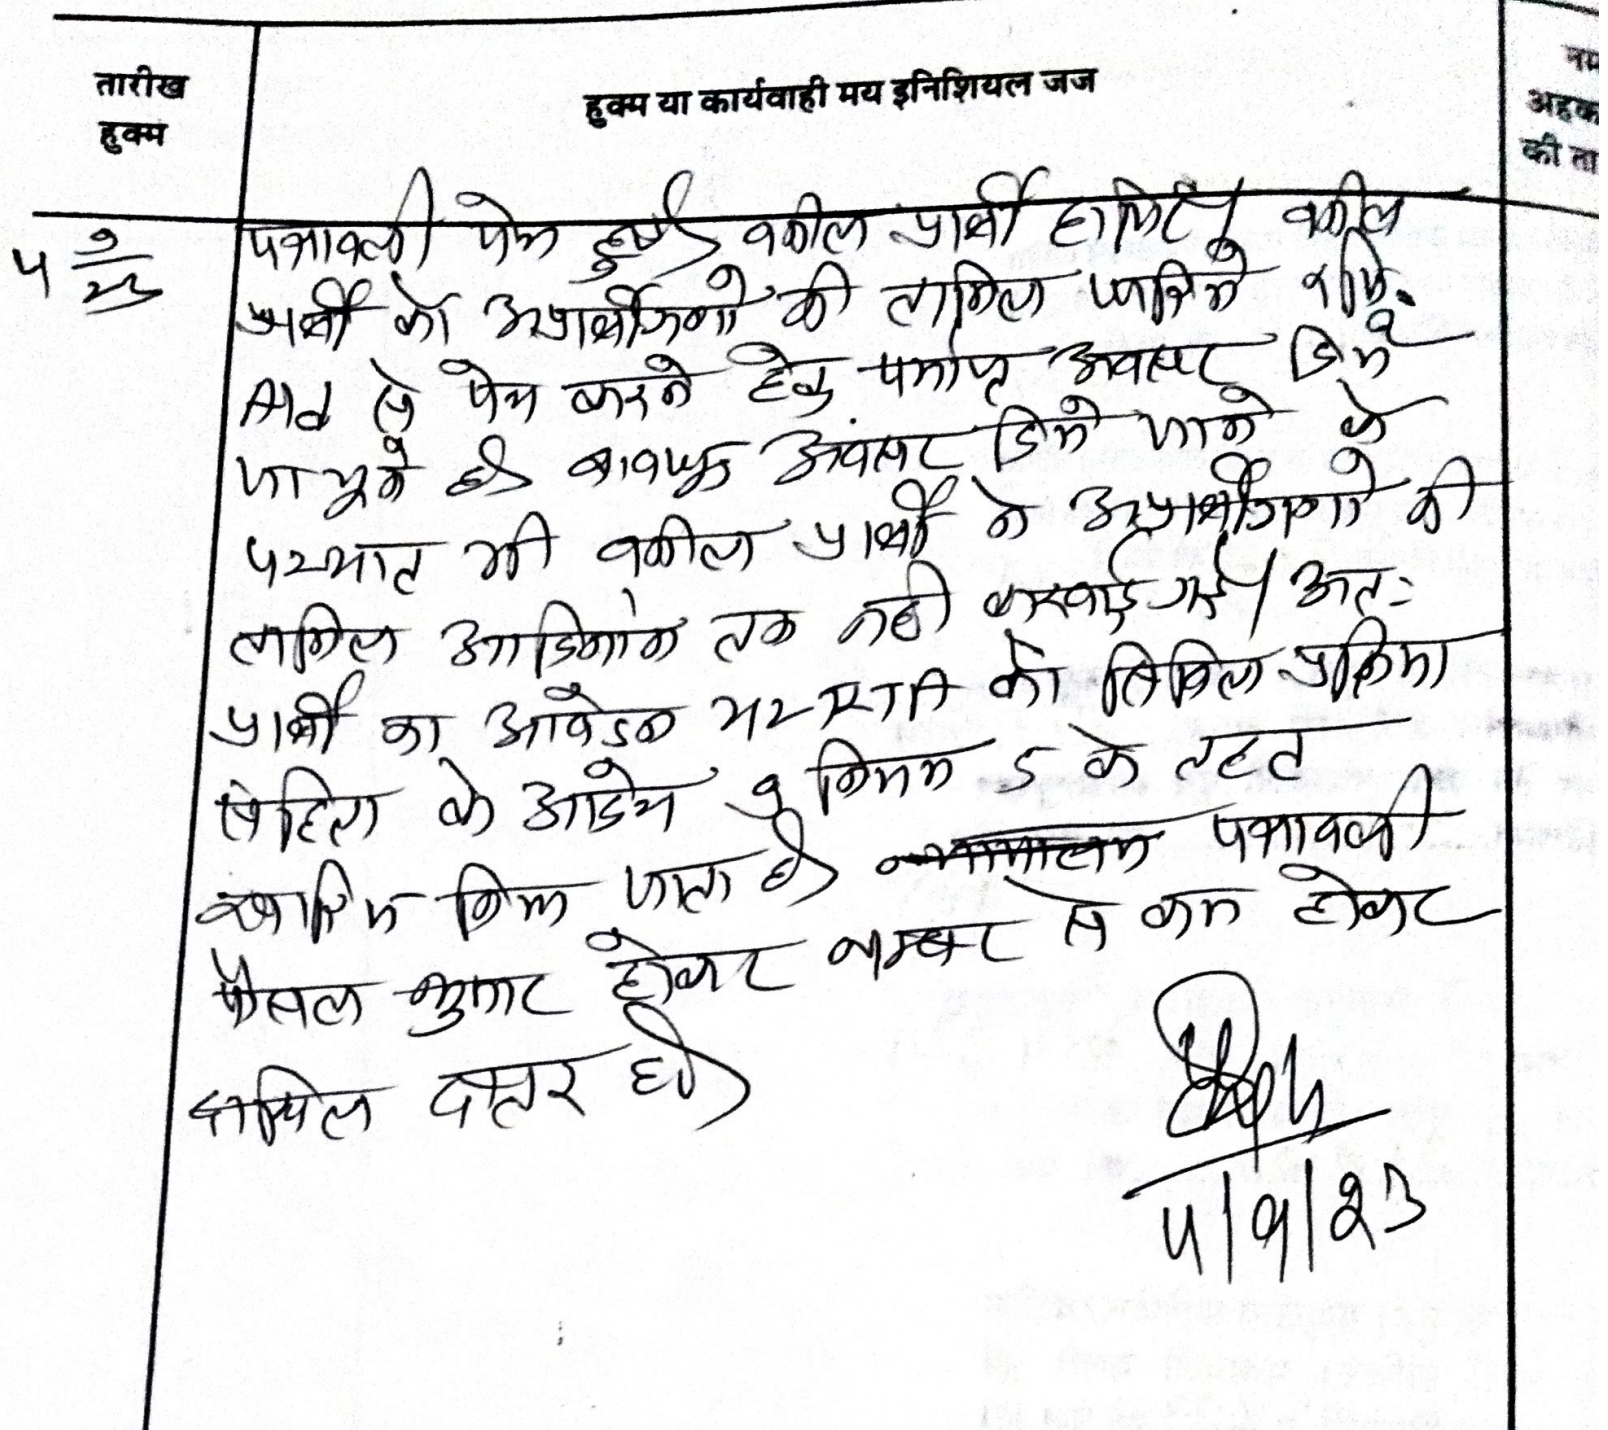 तारीख
हुक्म
हुक्म या कार्यवाही मय इनिशियल जज
नम
अहक
की ता
4 9/23
पत्रावली पेश हुई। वकील प्रार्थी हाजिर। वकील
प्रार्थी को अप्रार्थीगणो की तामिल जरिये रजि.
AD से पेश करने हेतु पर्याप्त अवसर दिये
जा चुके है। बावजूद अवसर दिये जाने के
पश्चात भी वकील प्रार्थी ने अप्रार्थीगणो की
तामिल आदिनांक तक नही करवाई गई। अतः
प्रार्थी का आवेदन को सिविल प्रक्रिया
संहिता के आदेश 9 नियम 5 के तहत
खारिज किया जाता है। न्यायालय पत्रावली
फैसल शुमार होकर नम्बर से कम होकर
दाखिल दफ्तर हो।
4/9/23